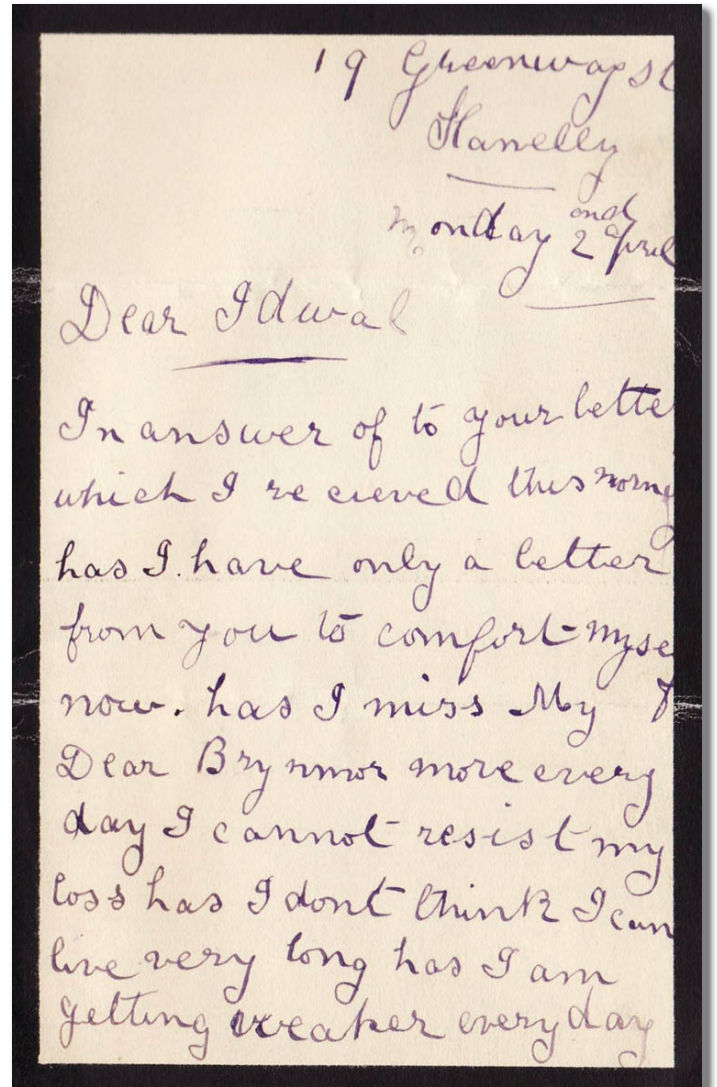 19 Greenway St
Llanelly
Monday 2nd April
Dear Idwal
In answer of to your lette
which I re cieved this morng
has I have only a letter
from you to comfort myse
now. has I miss My f
Dear Brynmor more every
day I cannot resist my
loss has I dont think I can
live very long has I am
getting weaker every day